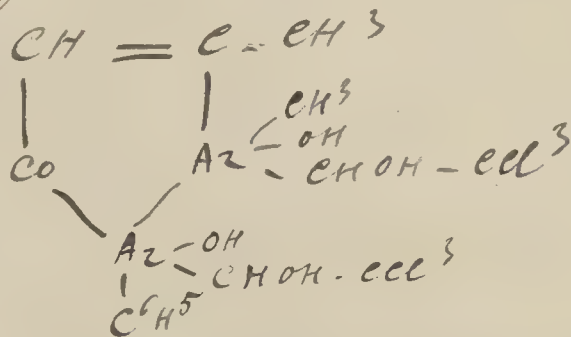 CH = C - CH³
CH³
OH
CO Az - CHOH - CCl³
Az - OH
CHOH - CCl³
C⁶H⁵